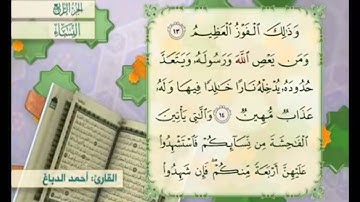 الجزء الرابع
النساء
وَذَٰلِكَ ٱلْفَوْزُ ٱلْعَظِيمُ ١٣
وَمَن يَعْصِ ٱللَّهَ وَرَسُولَهُۥ وَيَتَعَدَّ
حُدُودَهُۥ يُدْخِلْهُ نَارًا خَٰلِدًا فِيهَا وَلَهُۥ
عَذَابٌ مُّهِينٌ ١٤ وَٱلَّٰتِى يَأْتِينَ
ٱلْفَٰحِشَةَ مِن نِّسَآئِكُمْ فَٱسْتَشْهِدُوا۟
عَلَيْهِنَّ أَرْبَعَةً مِّنكُمْ ۖ فَإِن شَهِدُوا۟
القارئ: أحمد الدباغ